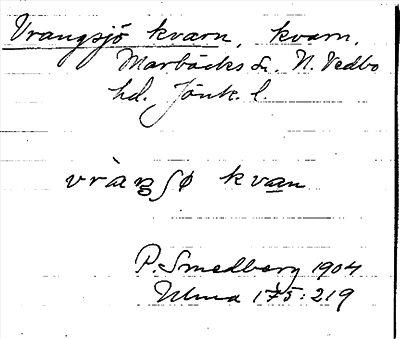 Vrangsjö kvarn, kvarn.
Marbäcks s., N. Vedbo
hd. Jönk. l
vràŋʃø kvan
P. Smedberg 1904
Ulma 175:219